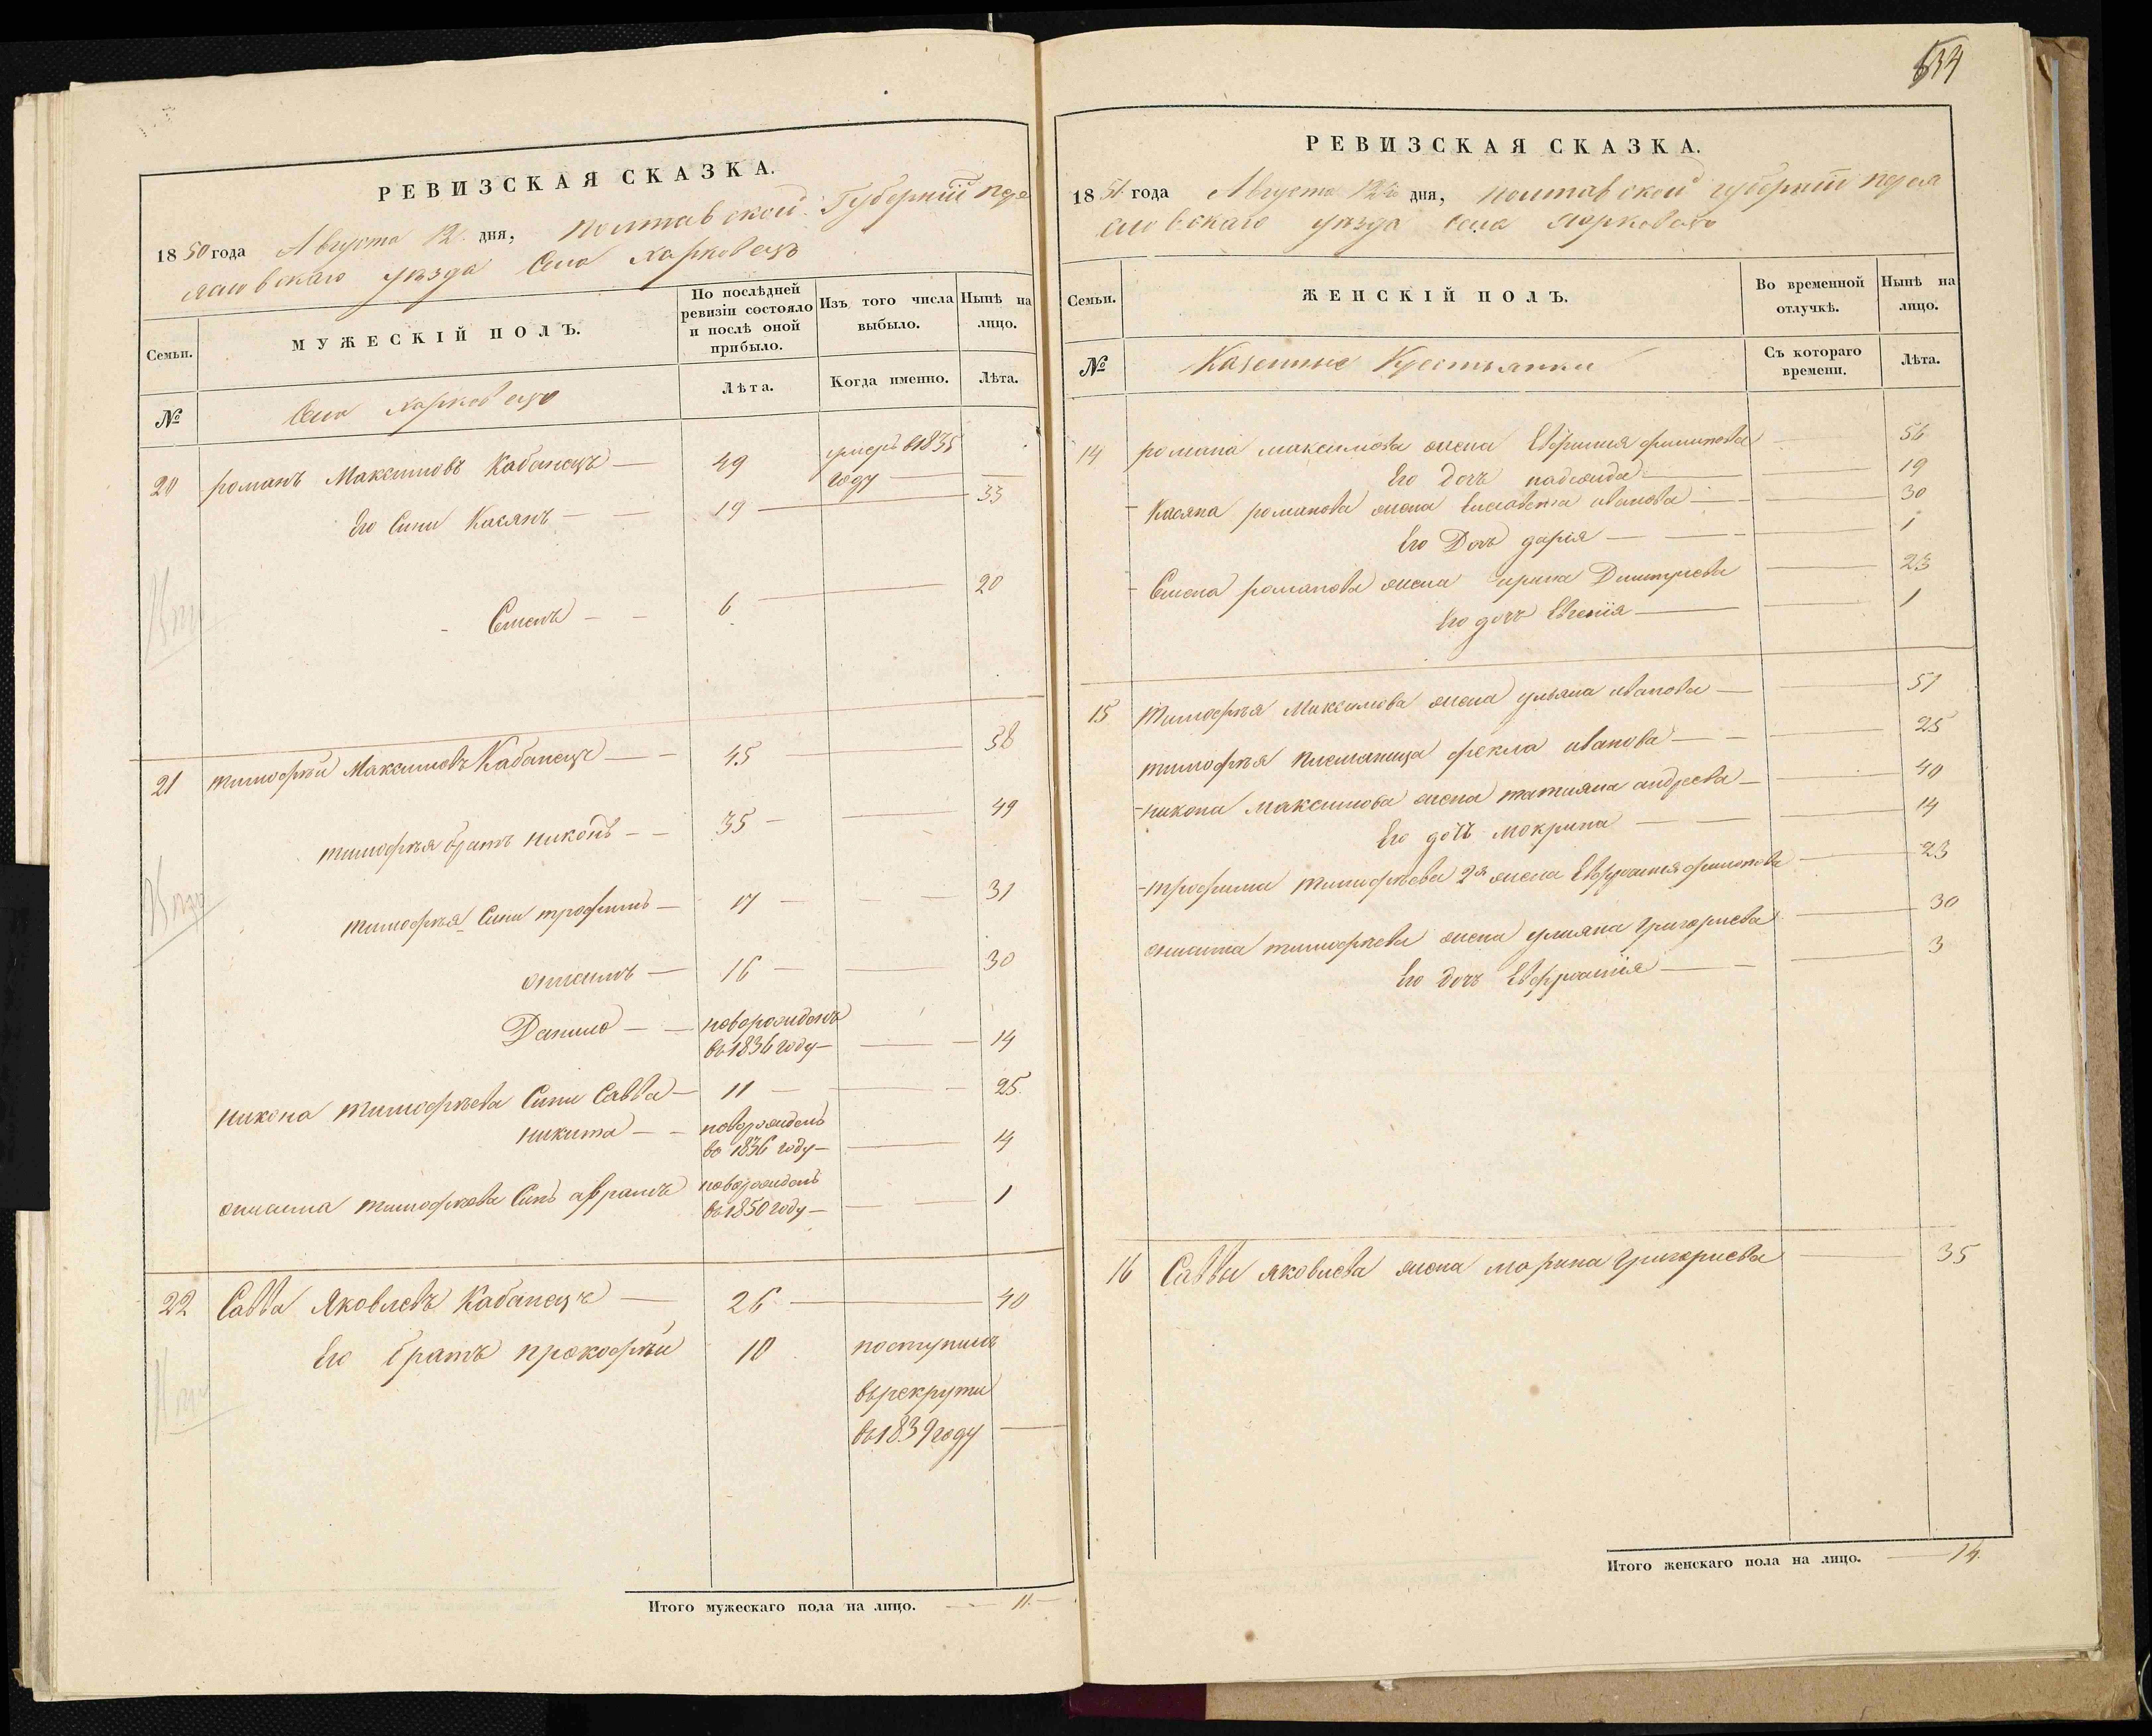 РЕВИЗСКАЯ СКАЗКА.
1850 года Августа 12 дня, Полтавской Губернiй Пере
яславскаго уѣзда Села Харковецъ
Семьи.
МУЖЕСКІЙ ПОЛЪ.
По послѣдней
ревизіи состояло
и послѣ оной
прибыло.
Изъ того числа
выбыло.
Нынѣ на
лицо.
№
Села Харковецъ
Лѣта.
Когда именно.
Лѣта.
20 романъ Максимовъ Кабанецъ — 49 умеръ в 1835
году —
Его Сини Касянъ — — 19 — 33
Семенъ — — 6 — 20
21 тимофѣй Максимовъ Кабанецъ — — 45 — 58
тимофѣя братъ никонъ — — 35 — 49
тимофѣя Сини трофимъ — 17 — 31
онисимъ — 16 — 30
Данило — — новорожденъ
въ 1836 году — 14
никона тимофѣева Сини Савва — 11 — 25
никита — — новорожденъ
во 1836 году — 14
онисима тимофѣева Синъ аврамъ новорожденъ
въ 1850 году — 1
22 Савва Яковлевъ Кабанецъ — 26 — 40
Его братъ прокофѣй 10 поступилъ
въ рекруты
въ 1839 году —
Итого мужескаго пола на лицо. — 11 —
634
РЕВИЗСКАЯ СКАЗКА.
1851 года Августа 12 дня, полтавской губернiи перея
славскаго уѣзда села Харковецъ
Семьи.
ЖЕНСКІЙ ПОЛЪ.
Во временной
отлучкѣ.
Нынѣ на
лицо.
№
Казенные Крестьянки
Съ котораго
времени.
Лѣта.
14 романа максимова жена Евфимия филипова — 56
Его Дочъ надежда — 19
– Касяна романова жена Елисавета иванова — 30
Его Дочъ дарiя — 1
– Семена романова жена ирина Димитриева — 23
Его дочъ Евгенiя — 1
15 тимофѣя Максимова жена ульяна иванова — 51
тимофѣя племяница фекла иванова — 25
–никона Максимова жена татияна андреева — 40
Его дочъ мокрина — 14
–трофима тимофѣева 2я жена Евфросиния филипова — 23
онисима тимофѣева жена улияна Григориева — 30
Его дочъ Евфросинiя — 3
16 Саввы яковлева жена марина Григориева — 35
Итого женскаго пола на лицо. — 14.